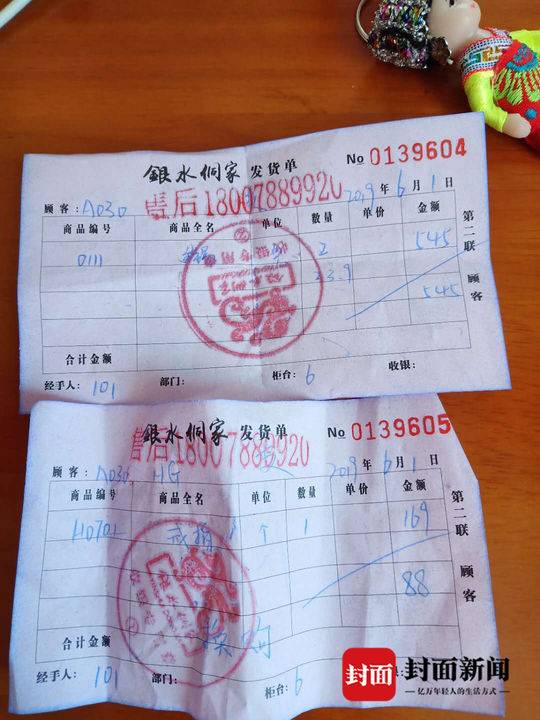 銀水侗家 发货单 No 0139604
售后18007889920
顾客: A030 2019 年 6 月 1 日
商品编号 商品全名 单位 数量 单价 金额
0111 2 545
23.9
545
合计金额
经手人: 101 部门: 柜台: 6 收银:
第二联 顾客
銀水侗家 发货单 No 0139605
售后18007889920
顾客: A030, HG 2019 年 6 月 1 日
商品编号 商品全名 单位 数量 单价 金额
H0701 戒指 个 1 169
88
合计金额 换购
经手人: 101 部门: 柜台: 6
第二联 顾客
封面 封面新闻
亿万年轻人的生活方式